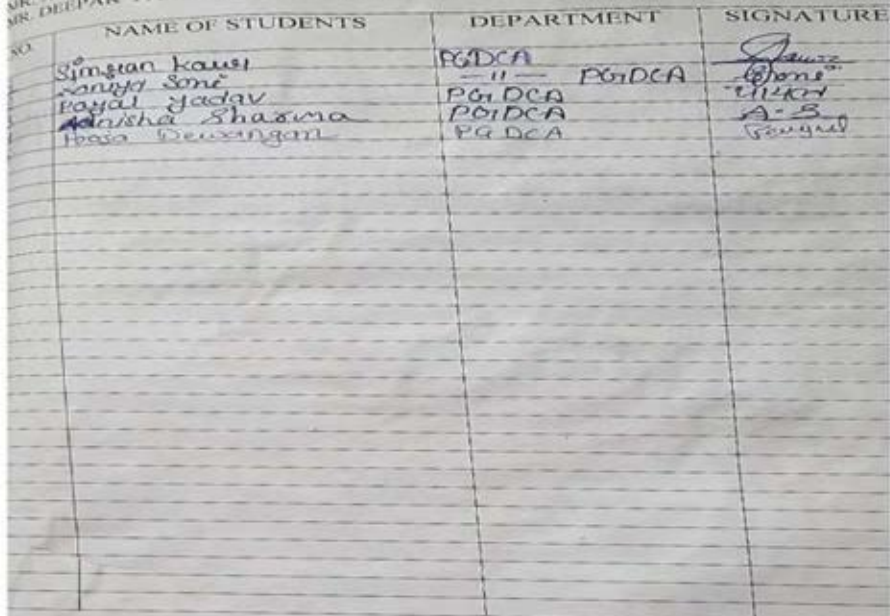 MR. DEEPAK
NO. NAME OF STUDENTS DEPARTMENT SIGNATURE
Simran Kaur PGDCA
Soni — 11 — PGDCA Soni
Payal Yadav PGDCA
Anisha Sharma PGDCA A-S
Dewangan PGDCA